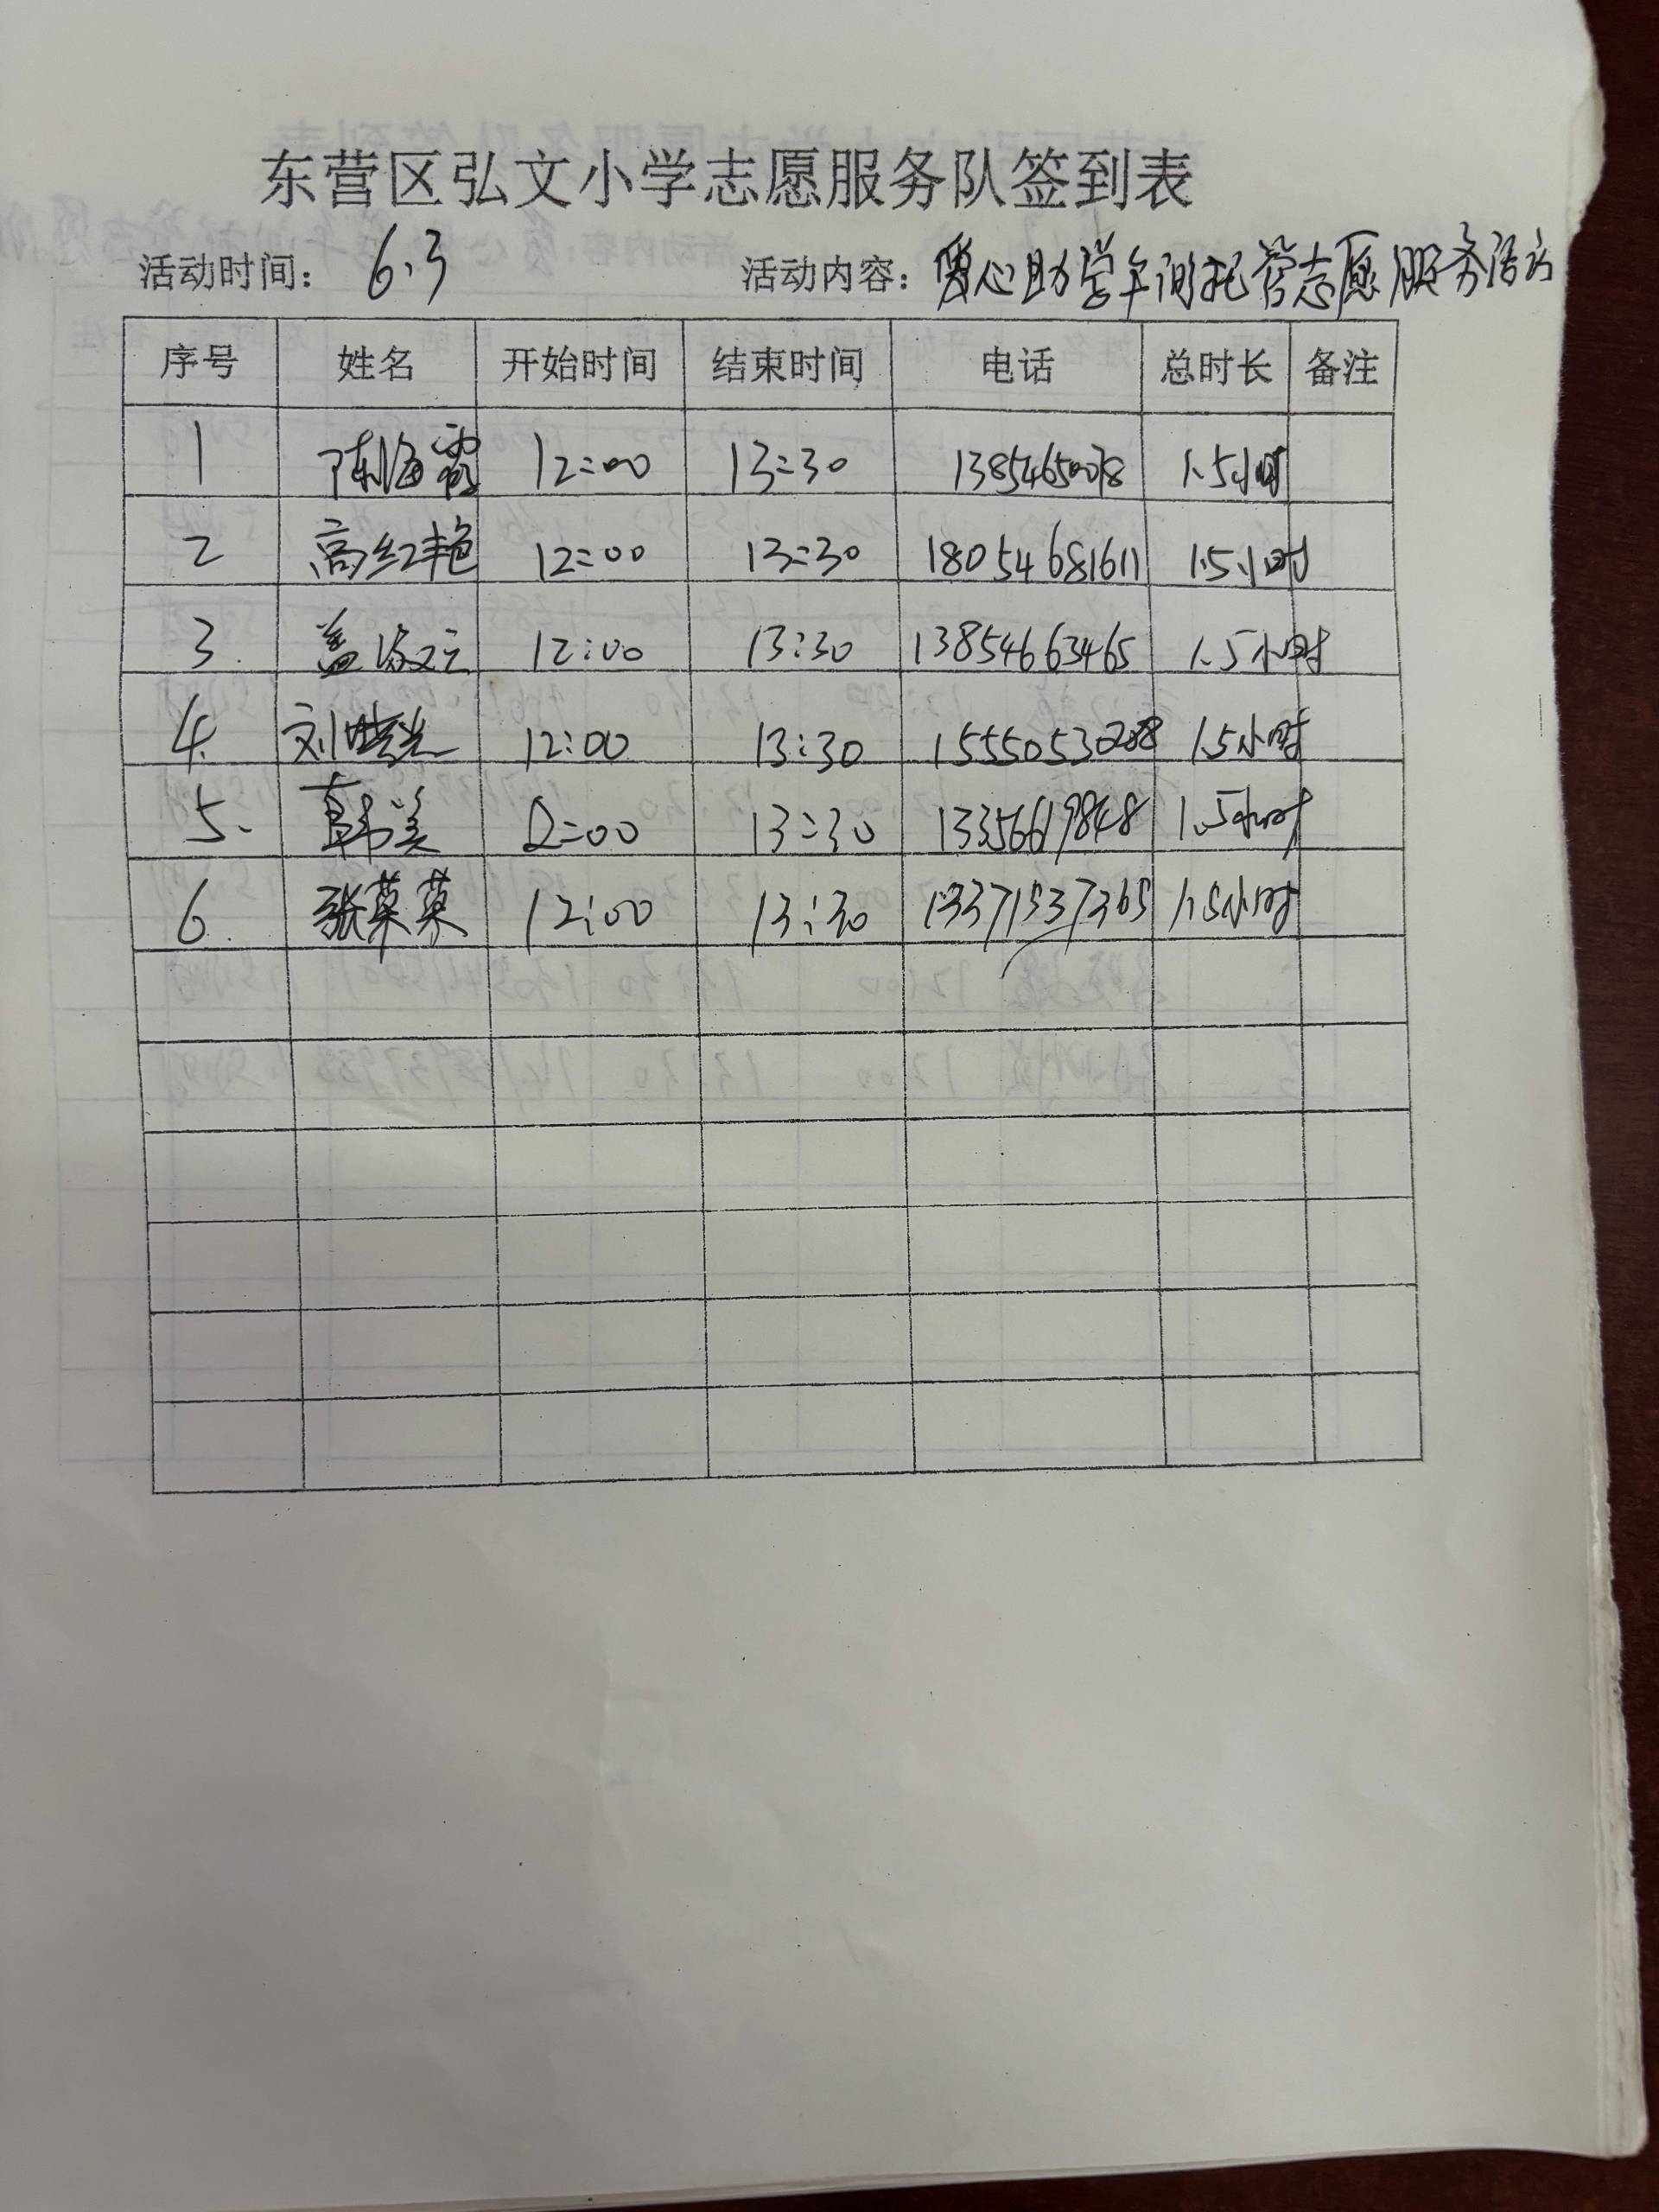 东营区弘文小学志愿服务队签到表
活动时间: 6.3 活动内容: 爱心助学午间托管志愿服务活动
序号 姓名 开始时间 结束时间 电话 总时长 备注
1 陈海霞 12:00 13:30 13854650078 1.5小时
2 高红艳 12:00 13:30 18054681611 1.5小时
3. 盖 12:00 13:30 13854663465 1.5小时
4. 刘晓光 12:00 13:30 15550530208 1.5小时
5. 韩美 12:00 13:30 13356619848 1.5小时
6. 张英英 12:00 13:30 13371537365 1.5小时